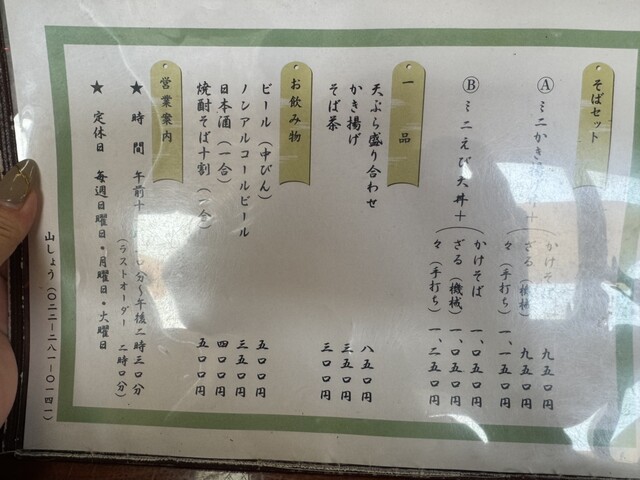 そばセット
Ⓐ ミニかき ＋
かけそ 九五〇円
ざる（機械） 九五〇円
々（手打ち） 一、一五〇円
Ⓑ ミニえび天丼＋
かけそば 一、〇五〇円
ざる（機械） 一、〇五〇円
々（手打ち） 一、二五〇円
一品
天ぷら盛り合わせ 八五〇円
かき揚げ 三五〇円
そば茶 三〇〇円
お飲み物
ビール（中びん） 五〇〇円
ノンアルコールビール 三五〇円
日本酒（一合） 四〇〇円
焼酎そば十割（一合） 五〇〇円
営業案内
★ 時間 午前十 〇分〜午後二時三〇分
（ラストオーダー 二時〇分）
★ 定休日 毎週日曜日・月曜日・火曜日
山しょう（〇二二ー二八一ー〇一四一）